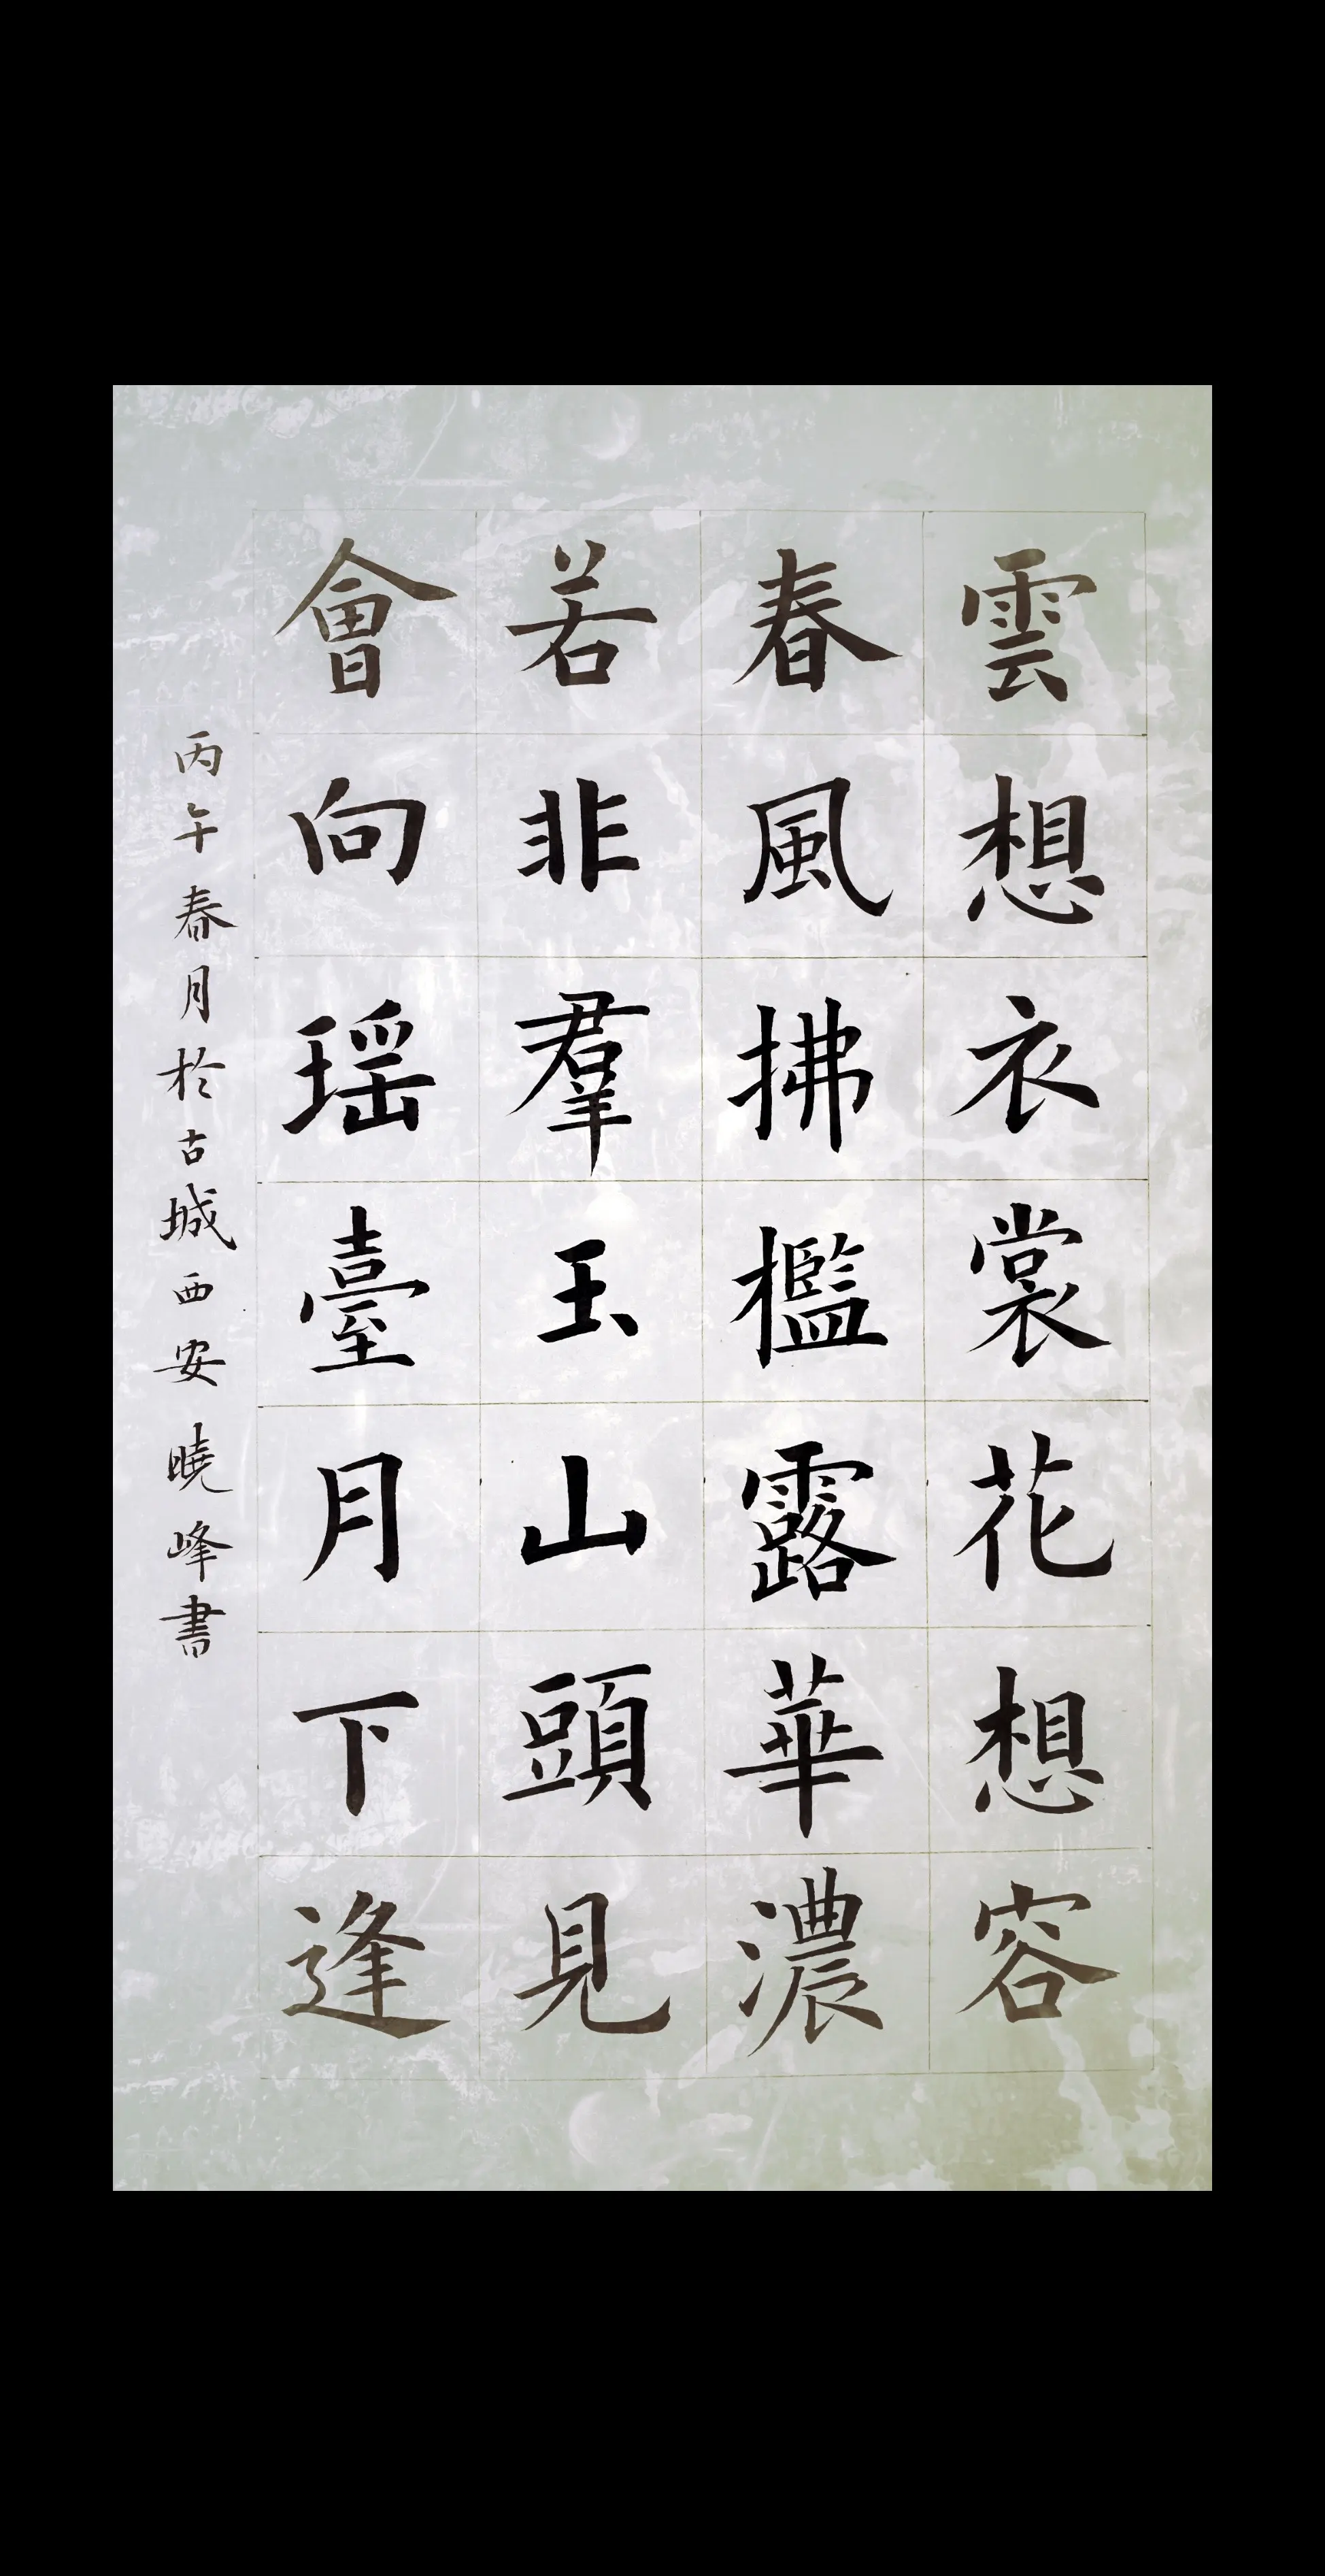 雲想衣裳花想容
春風拂檻露華濃
若非羣玉山頭見
會向瑶臺月下逢
丙午春月於古城西安曉峰書